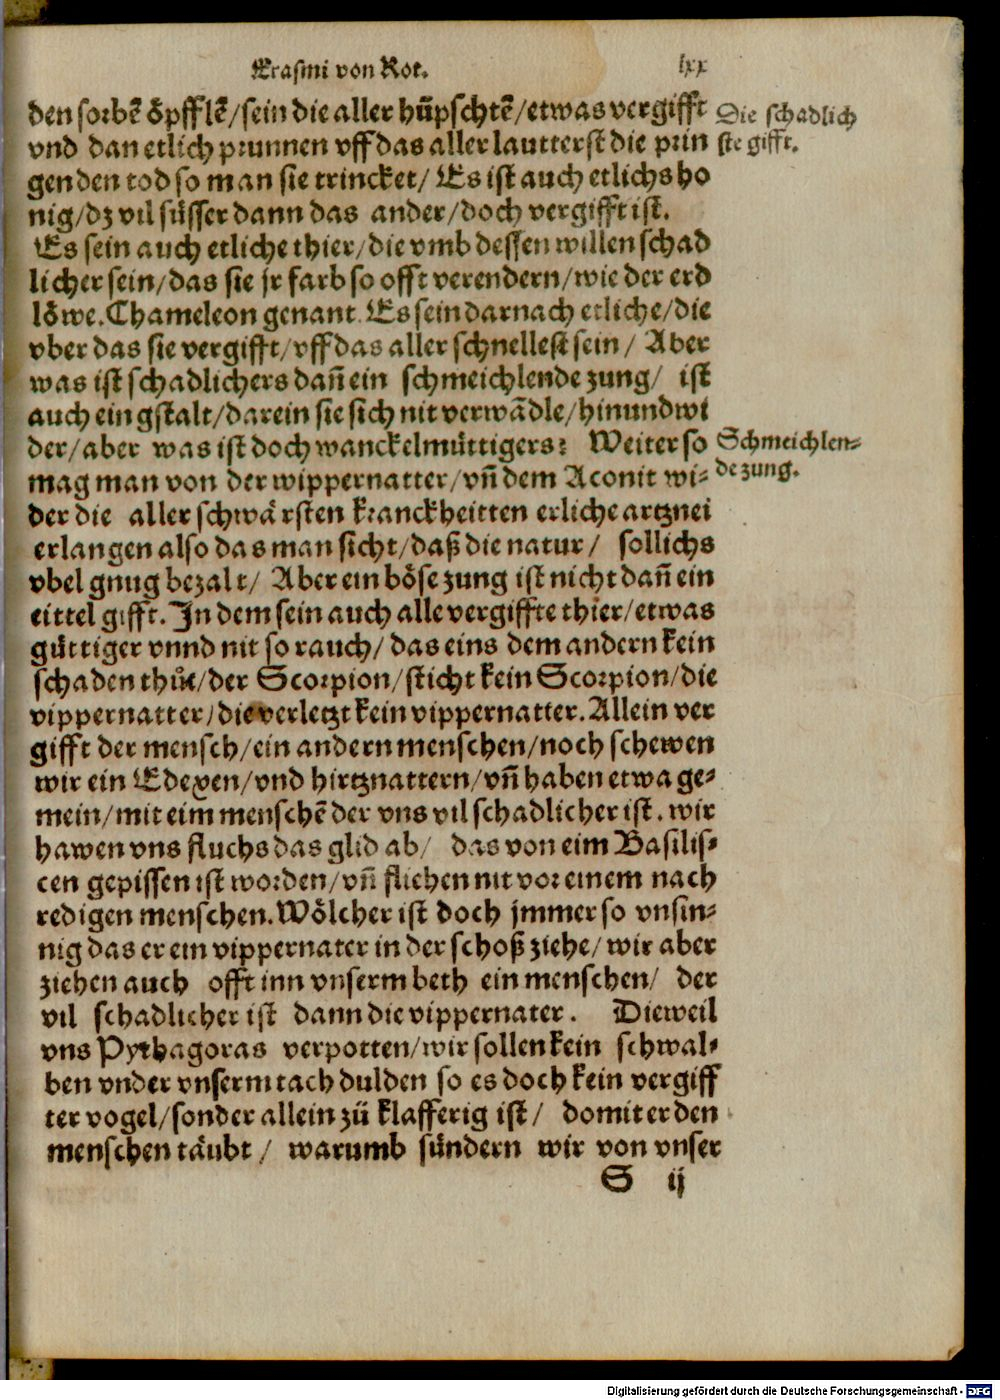 Erasmi von Rot. lxx
den sorbē öpfflē/sein die aller hüpschtē/etwas vergifft
vnd dan etlich prunnen vff das aller lautterst die prin
gen den tod so man sie trincket/ Es ist auch etlichs ho
nig/dz vil süsser dann das ander/doch vergifft ist.
Die schadlich
ste gifft.
Es sein auch etliche thier/die vmb dessen willen schad
licher sein/das sie jr farb so offt verendern/wie der erd
löwe. Chameleon genant. Es sein darnach etliche/die
vber das sie vergifft/vff das aller schnellest sein/ Aber
was ist schadlichers dañ ein schmeichlende zung/ ist
auch ein gstalt/darein sie sich nit verwādle/hinundwi
der/aber was ist doch wanckelmüttigers: Weiter so
mag man von der wippernatter/vñ dem Aconit wi-
Schmeichlen-
de zung.
der die aller schwärsten kranckheitten erliche artznei
erlangen also das man sicht/daß die natur/ sollichs
vbel gnug bezalt/ Aber ein böse zung ist nicht dañ ein
eittel gifft. In dem sein auch alle vergiffte thier/etwas
güttiger vnnd nit so rauch/das eins dem andern kein
schaden thůt/der Scorpion/sticht kein Scorpion/die
vippernatter/die verletzt kein vippernatter. Allein ver
gifft der mensch/ein andern menschen/noch schewen
wir ein Edexen/vnd hirtznattern/vñ haben etwa ge-
mein/mit eim menschē der vns vil schadlicher ist. wir
hawen vns fluchs das glid ab/ das von eim Basilis-
cen gepissen ist worden/vñ fliehen nit vor einem nach
redigen menschen. Wölcher ist doch jmmer so vnsin-
nig das er ein vippernater in der schoß ziehe/wir aber
ziehen auch offt inn vnserm beth ein menschen/ der
vil schadlicher ist dann die vippernater. Dieweil
vns Pythagoras verpotten/wir sollen kein schwal-
ben vnder vnserm tach dulden so es doch kein vergiff
ter vogel/sonder allein zů klafferig ist/ domit er den
menschen täubt/ warumb sündern wir von vnser
S ij
Digitalisierung gefördert durch die Deutsche Forschungsgemeinschaft - DFG